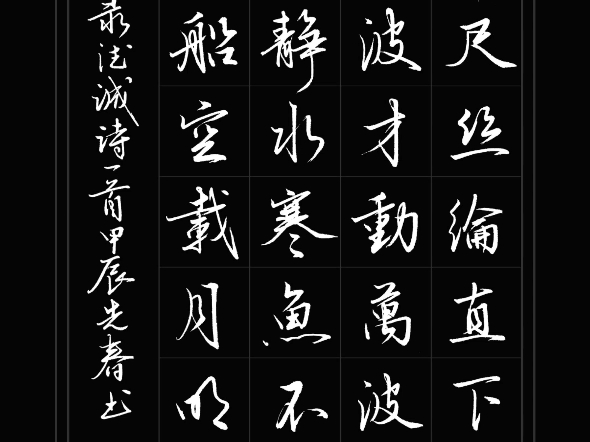 尺丝綸直下
波才動萬波
靜水寒魚不
船空載月明
录德诚诗一首甲辰先春书